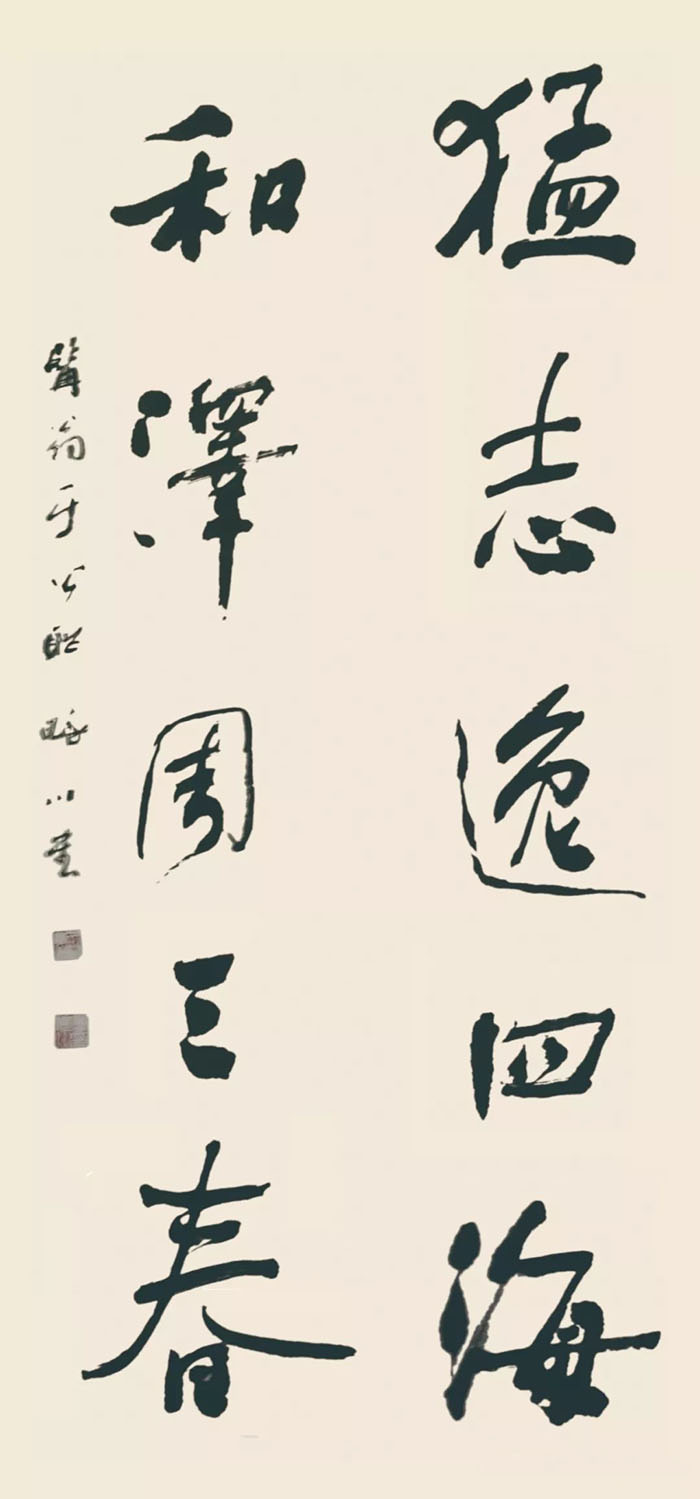 猛志逸四海
和澤周三春
髯翁于公聯 川